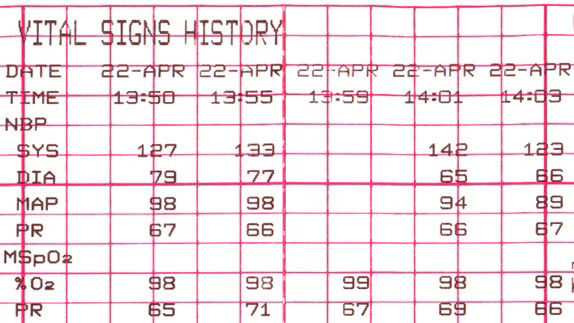 VITAL SIGNS HISTORY
DATE 22-APR 22-APR 22-APR 22-APR 22-APR
TIME 13:50 13:55 13:59 14:01 14:03
NBP
SYS 127 133 142 123
DIA 79 77 65 66
MAP 98 98 94 89
PR 67 66 66 67
MSpO₂
%O₂ 98 98 99 98 98
PR 65 71 67 69 66